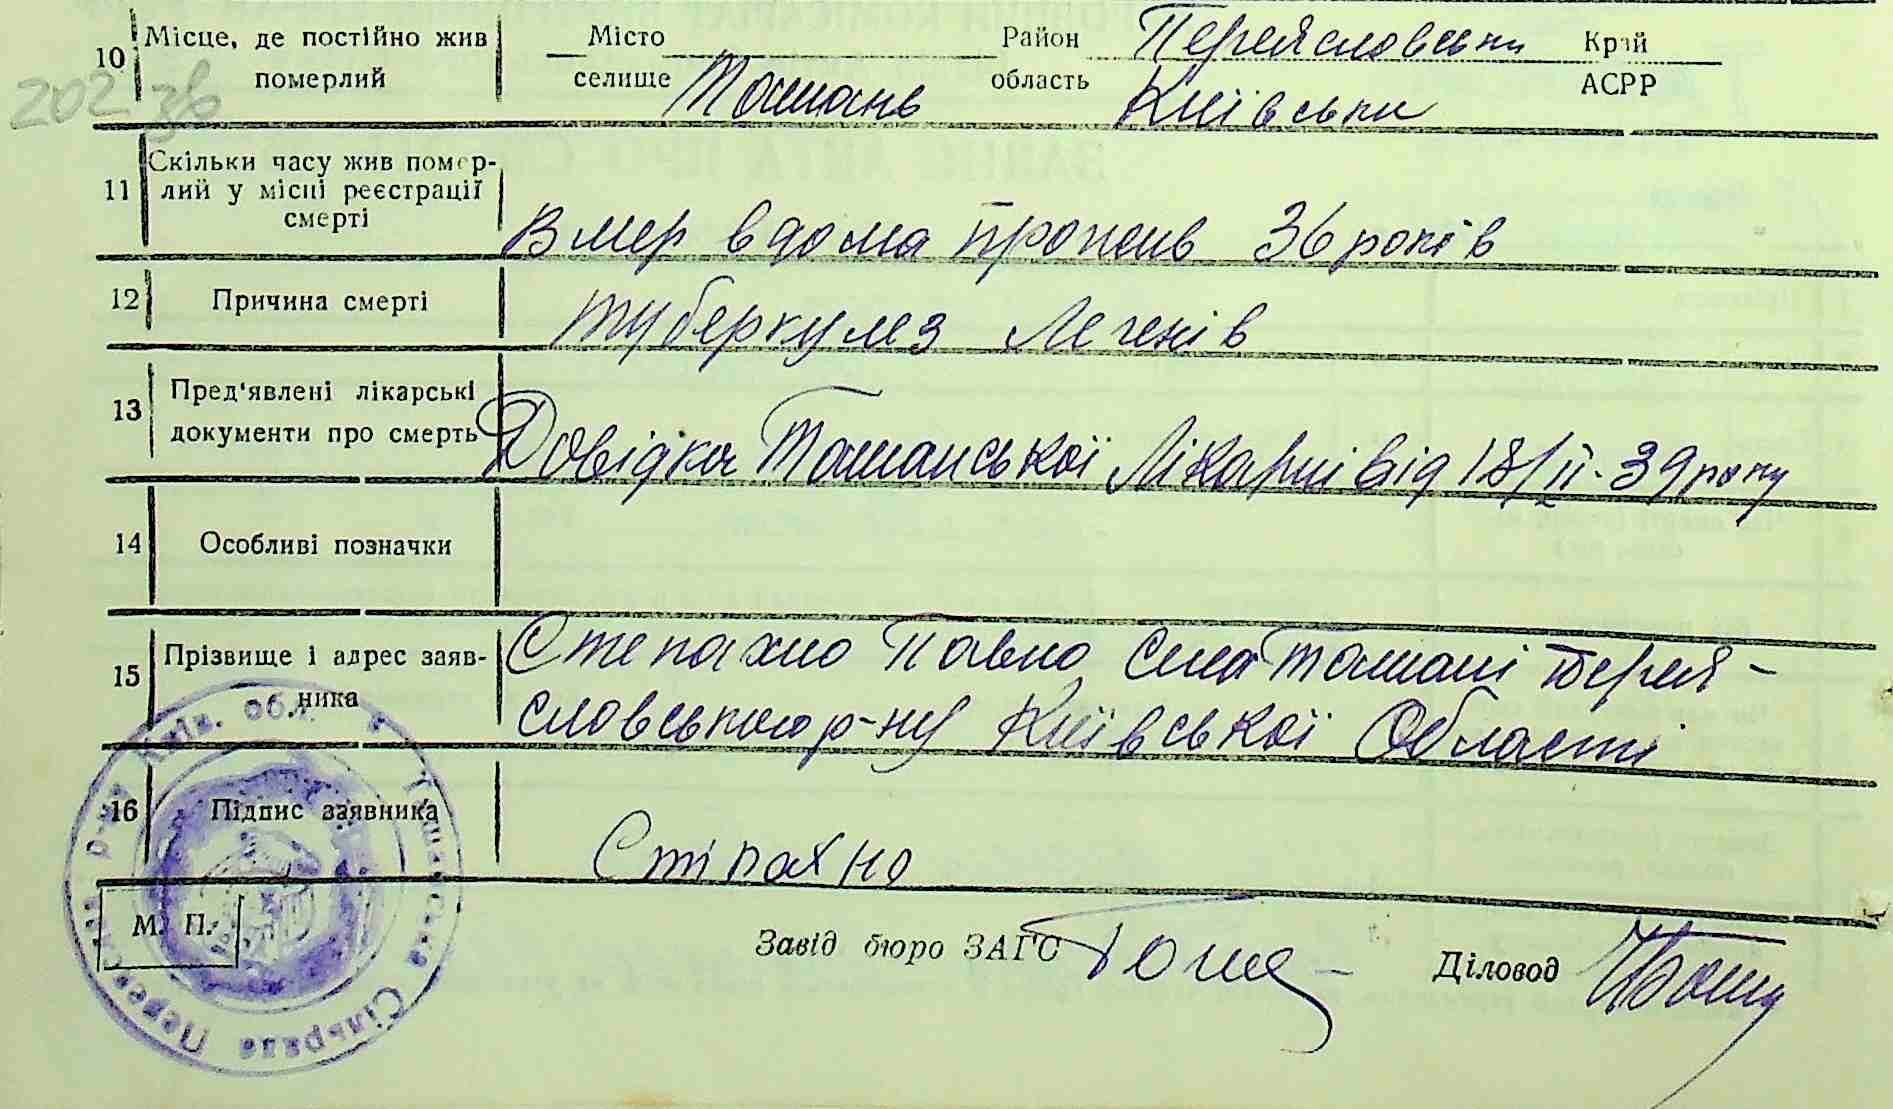 10 Місце, де постійно жив Місто Район Переясловськи Край
202 зв померлий селище Ташань область Київськи АСРР
11 Скільки часу жив помер-
лий у місці реєстрації
смерті
Вмер вдома прожив 36 років
12 Причина смерті туберкулез легенів
13 Пред'явлені лікарські
документи про смерть Довідка Ташанської Лікарні від 18/II-39 року
14 Особливі позначки
15 Прізвище і адрес заяв-
ника
Степахно Павло села Ташані Перея-
словського р-ну Київської Області
16 Підпис заявника
Стіпахно
М. П.
Завід бюро ЗАГС Діловод
Ташанська Сільрада Переясловськ р-ну Київ. обл.